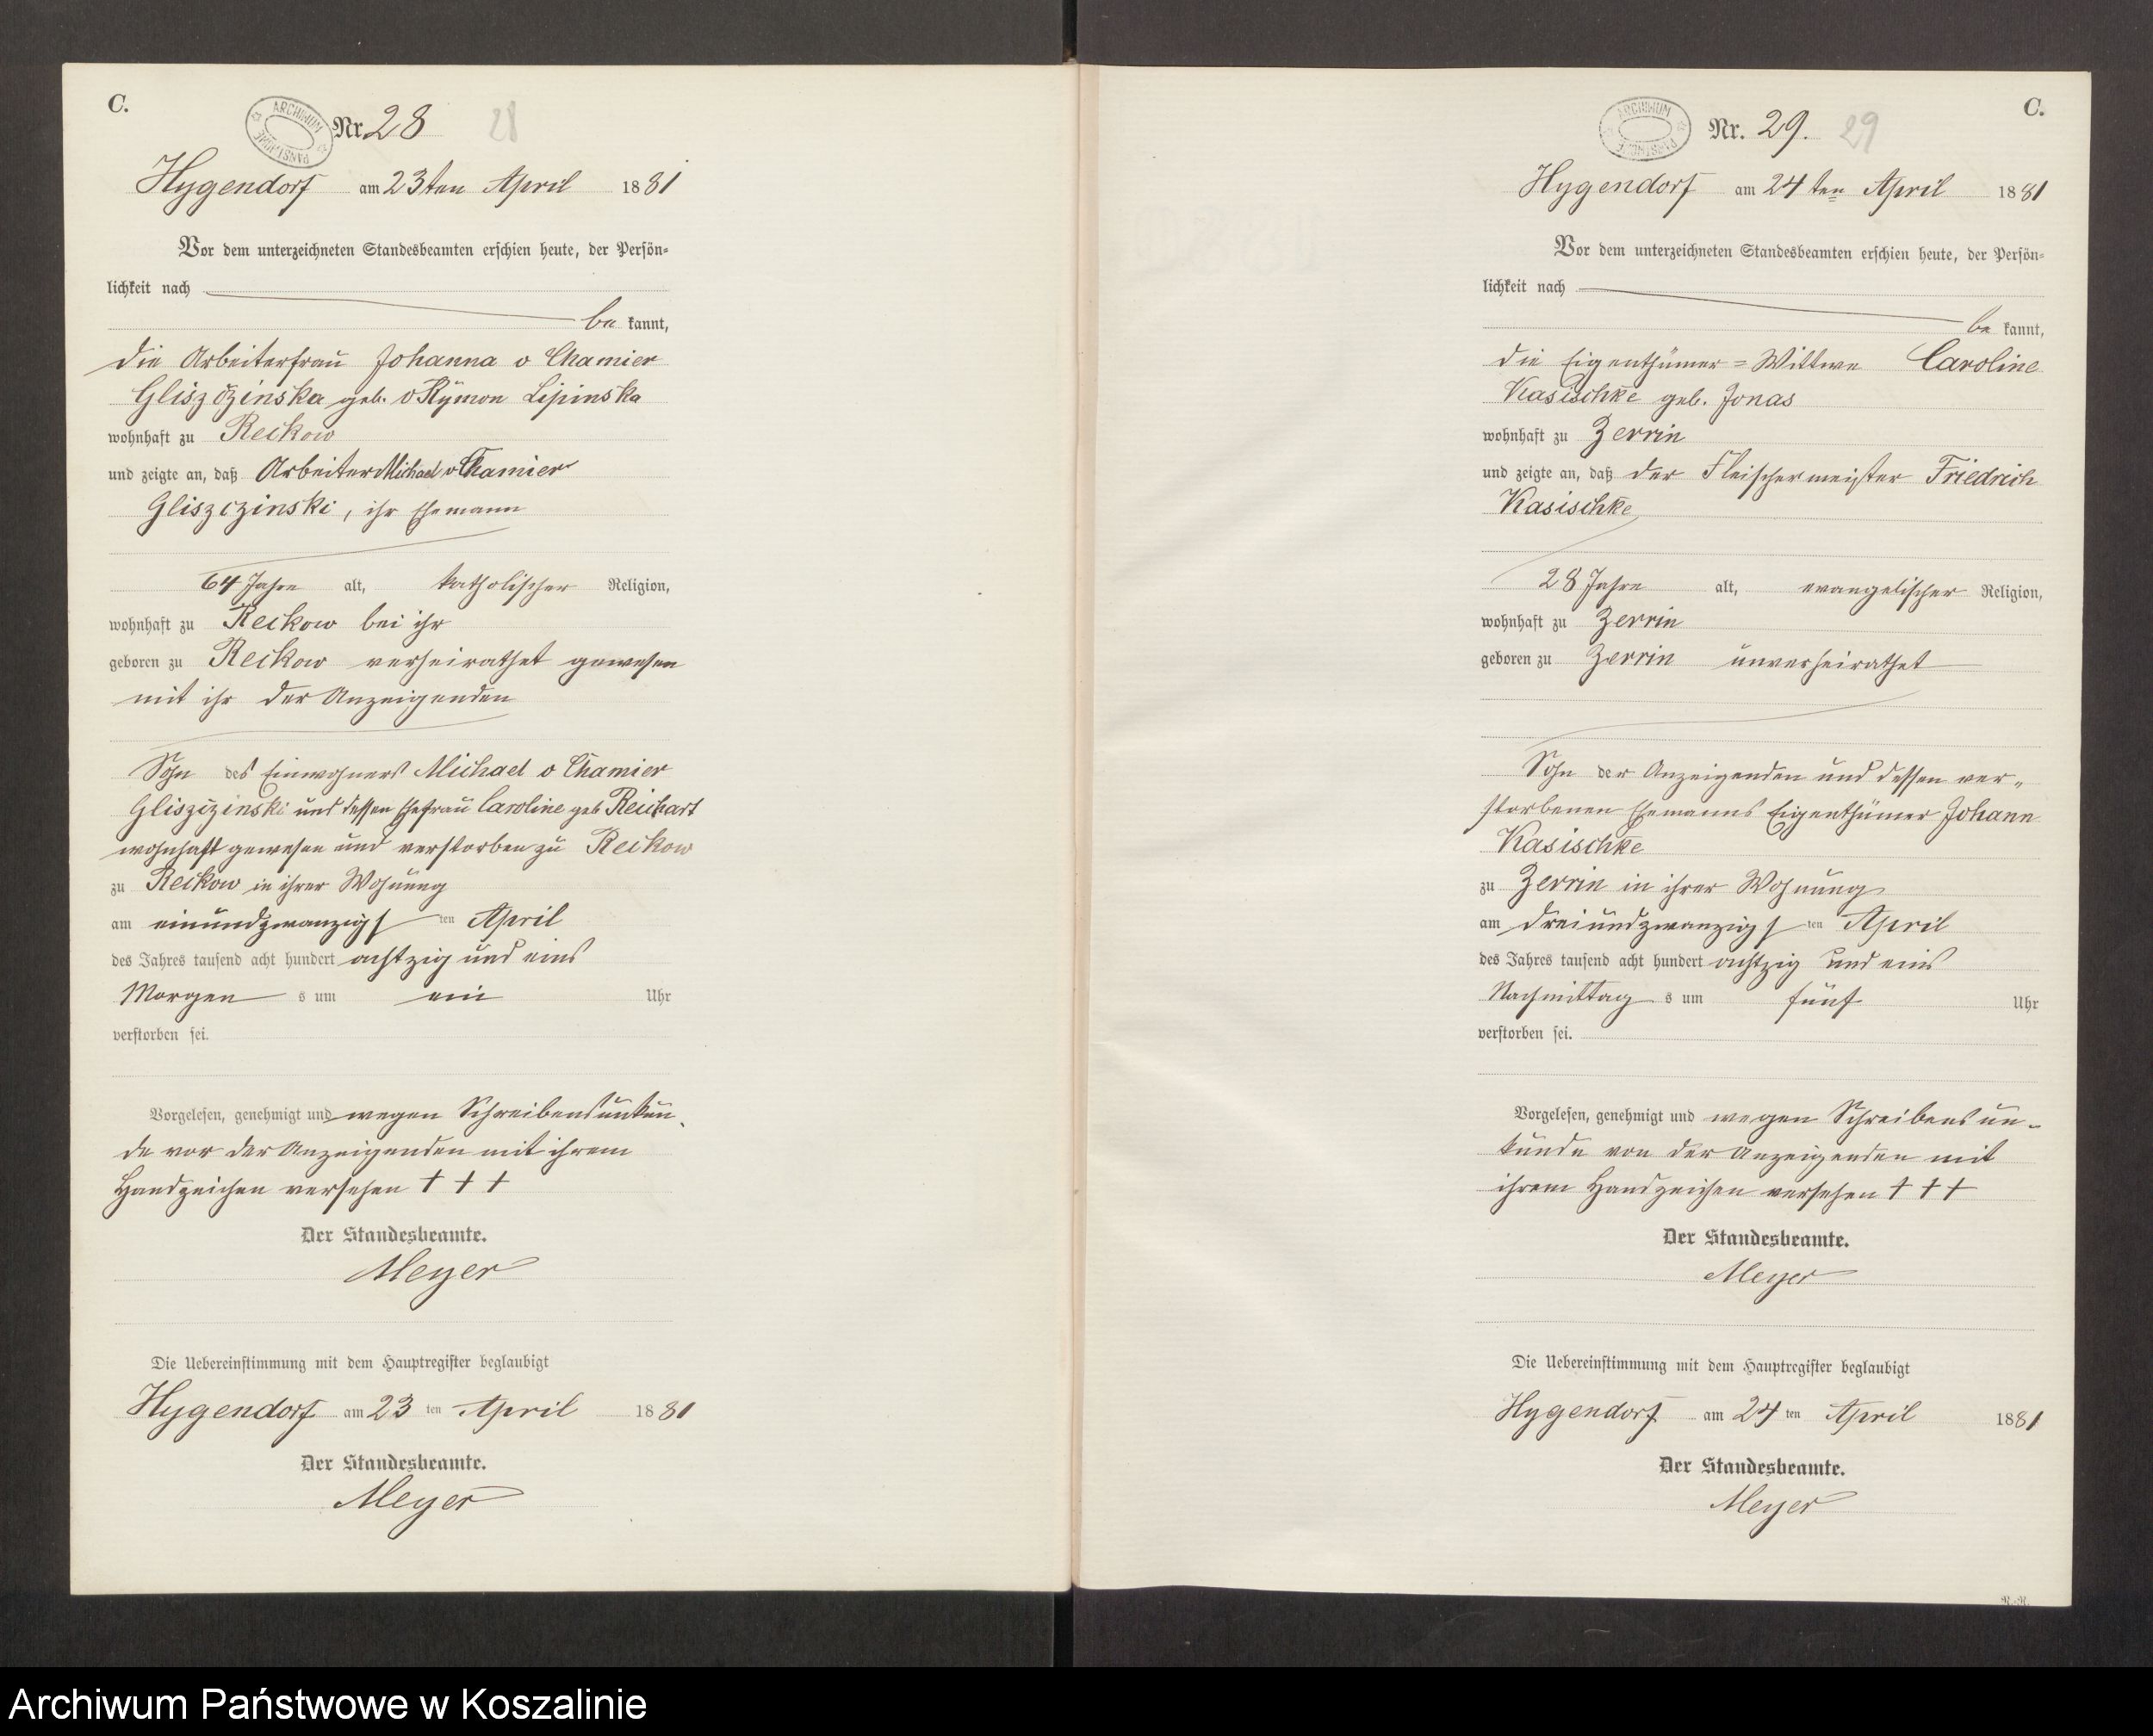 C.
ARCHIWUM PAŃSTWOWE
Nr. 28 28
Hygendorf am 23ten April 1881
Vor dem unterzeichneten Standesbeamten erschien heute, der Persön-
lichkeit nach
be kannt,
die Arbeiterfrau Johanna v Chamier
Gliszczinska geb. v Rymon Lipinska
wohnhaft zu Reckow
und zeigte an, daß Arbeiter Michael v Chamier
Gliszczinski, ihr Ehemann
64 Jahre alt, katholischer Religion,
wohnhaft zu Reckow bei ihr
geboren zu Reckow verheirathet gewesen
mit ihr der Anzeigenden
Sohn des Einwohners Michael v Chamier
Gliszczinski und dessen Ehefrau Caroline geb Reichart
wohnhaft gewesen und verstorben zu Reckow
zu Reckow in ihrer Wohnung
am einundzwanzigsten April
des Jahres tausend acht hundert achtzig und eins
Morgens um ein Uhr
verstorben sei.
Vorgelesen, genehmigt und wegen Schreibensunkun-
de vor der Anzeigenden mit ihrem
Handzeichen versehen + + +
Der Standesbeamte.
Meyer
Die Uebereinstimmung mit dem Hauptregister beglaubigt
Hygendorf am 23 ten April 1881
Der Standesbeamte.
Meyer
C.
ARCHIWUM PAŃSTWOWE
Nr. 29. 29
Hygendorf am 24 ten April 1881
Vor dem unterzeichneten Standesbeamten erschien heute, der Persön-
lichkeit nach
be kannt,
die Eigenthümer=Wittwe Caroline
Kasischke geb. Jonas
wohnhaft zu Zerrin
und zeigte an, daß der Fleischermeister Friedrich
Kasischke
28 Jahre alt, evangelischer Religion,
wohnhaft zu Zerrin
geboren zu Zerrin unverheirathet
Sohn der Anzeigenden und dessen ver-
storbenen Ehemanns Eigenthümer Johann
Kasischke
zu Zerrin in ihrer Wohnung
am dreiundzwanzigsten April
des Jahres tausend acht hundert achtzig und eins
Nachmittags um fünf Uhr
verstorben sei.
Vorgelesen, genehmigt und wegen Schreibensun-
kunde von der Anzeigenden mit
ihrem Handzeichen versehen + + +
Der Standesbeamte.
Meyer
Die Uebereinstimmung mit dem Hauptregister beglaubigt
Hygendorf am 24 ten April 1881
Der Standesbeamte.
Meyer
R. R.
Archiwum Państwowe w Koszalinie